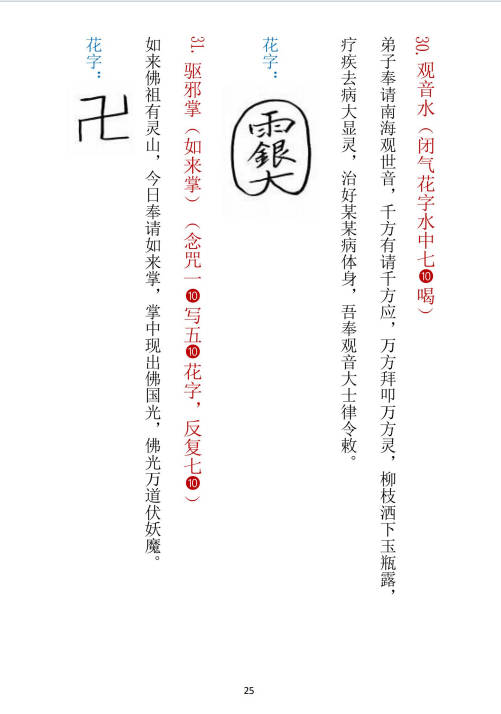 30. 观音水（闭气花字水中七❿喝）
弟子奉请南海观世音，千方有请千方应，万方拜叩万方灵，柳枝洒下玉瓶露，
疗疾去病大显灵，治好某某病体身，吾奉观音大士律令敕。
花字：
雨銀大
31. 驱邪掌（如来掌）（念咒一❿写五❿花字，反复七❿）
如来佛祖有灵山，今日奉请如来掌，掌中现出佛国光，佛光万道伏妖魔。
花字：
卍
25